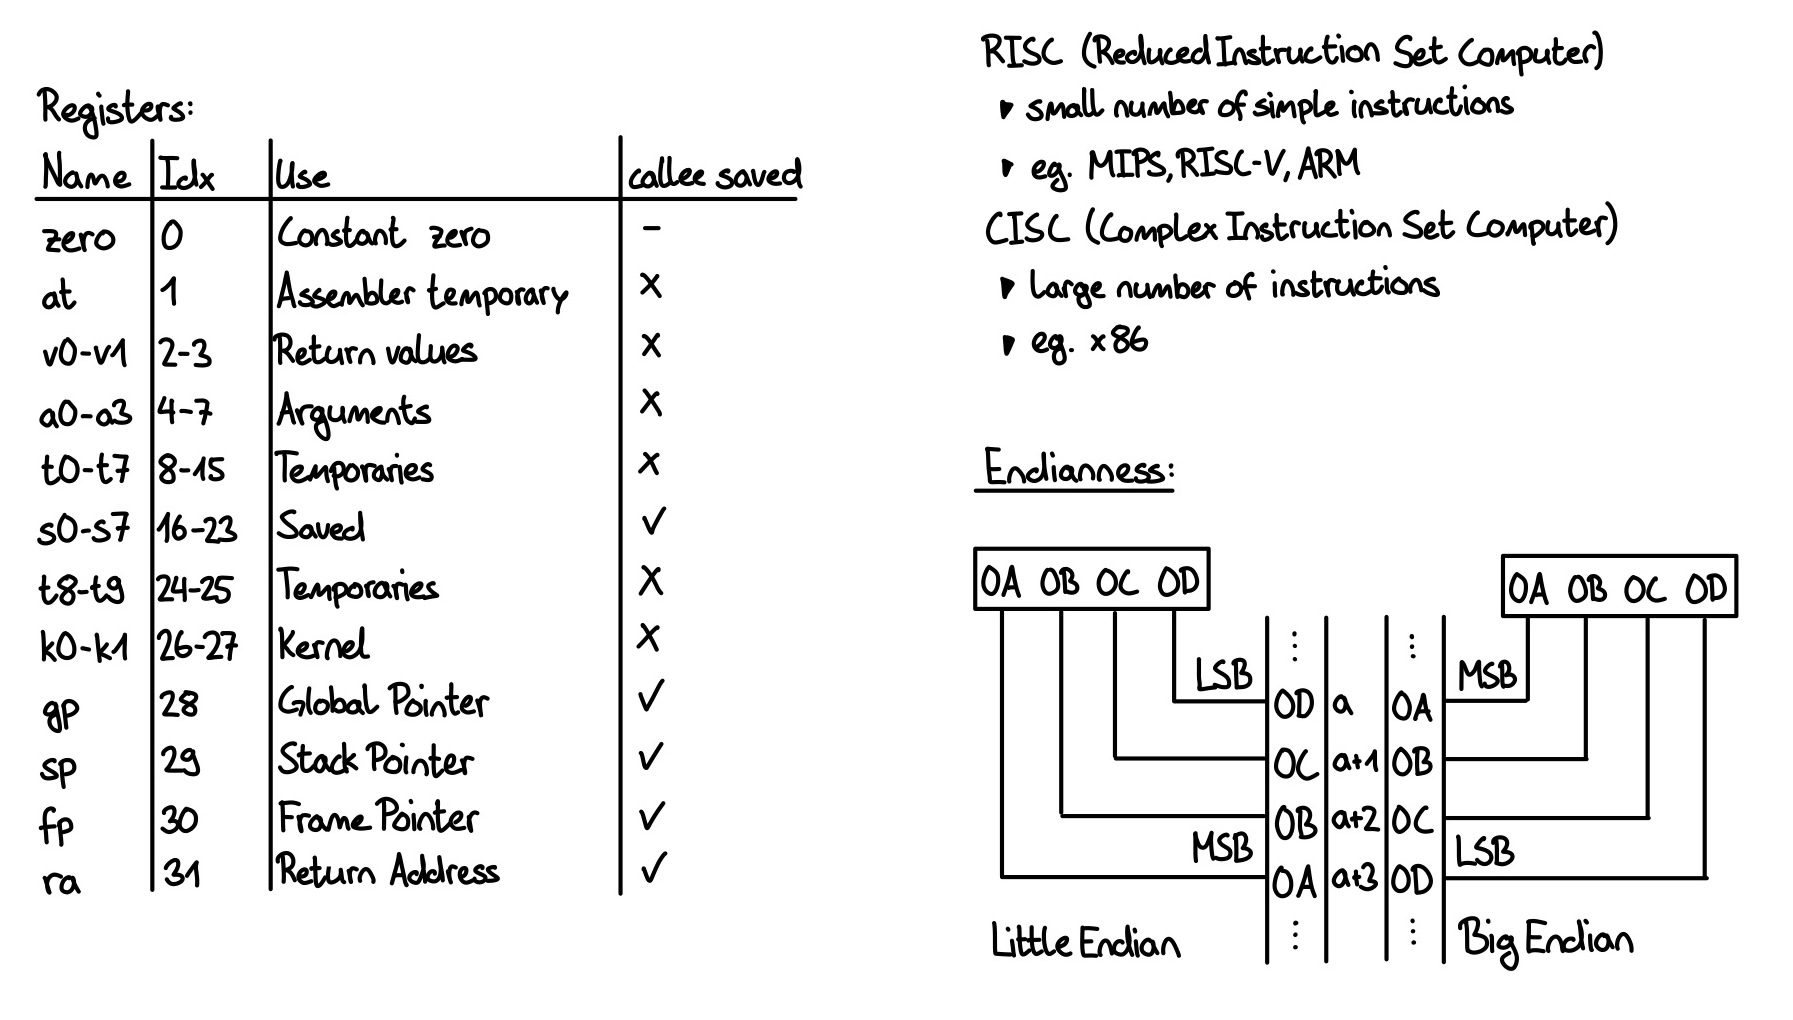 Registers:
Name Idx Use callee saved
zero 0 Constant zero -
at 1 Assembler temporary x
v0-v1 2-3 Return values x
a0-a3 4-7 Arguments x
t0-t7 8-15 Temporaries x
s0-s7 16-23 Saved ✓
t8-t9 24-25 Temporaries x
k0-k1 26-27 Kernel x
gp 28 Global Pointer ✓
sp 29 Stack Pointer ✓
fp 30 Frame Pointer ✓
ra 31 Return Address ✓
RISC (Reduced Instruction Set Computer)
▸ small number of simple instructions
▸ eg. MIPS, RISC-V, ARM
CISC (Complex Instruction Set Computer)
▸ large number of instructions
▸ eg. x86
Endianness:
0A 0B 0C 0D 0A 0B 0C 0D
⋮ ⋮
LSB MSB
0D a 0A
0C a+1 0B
0B a+2 0C
MSB LSB
0A a+3 0D
⋮ ⋮
Little Endian Big Endian